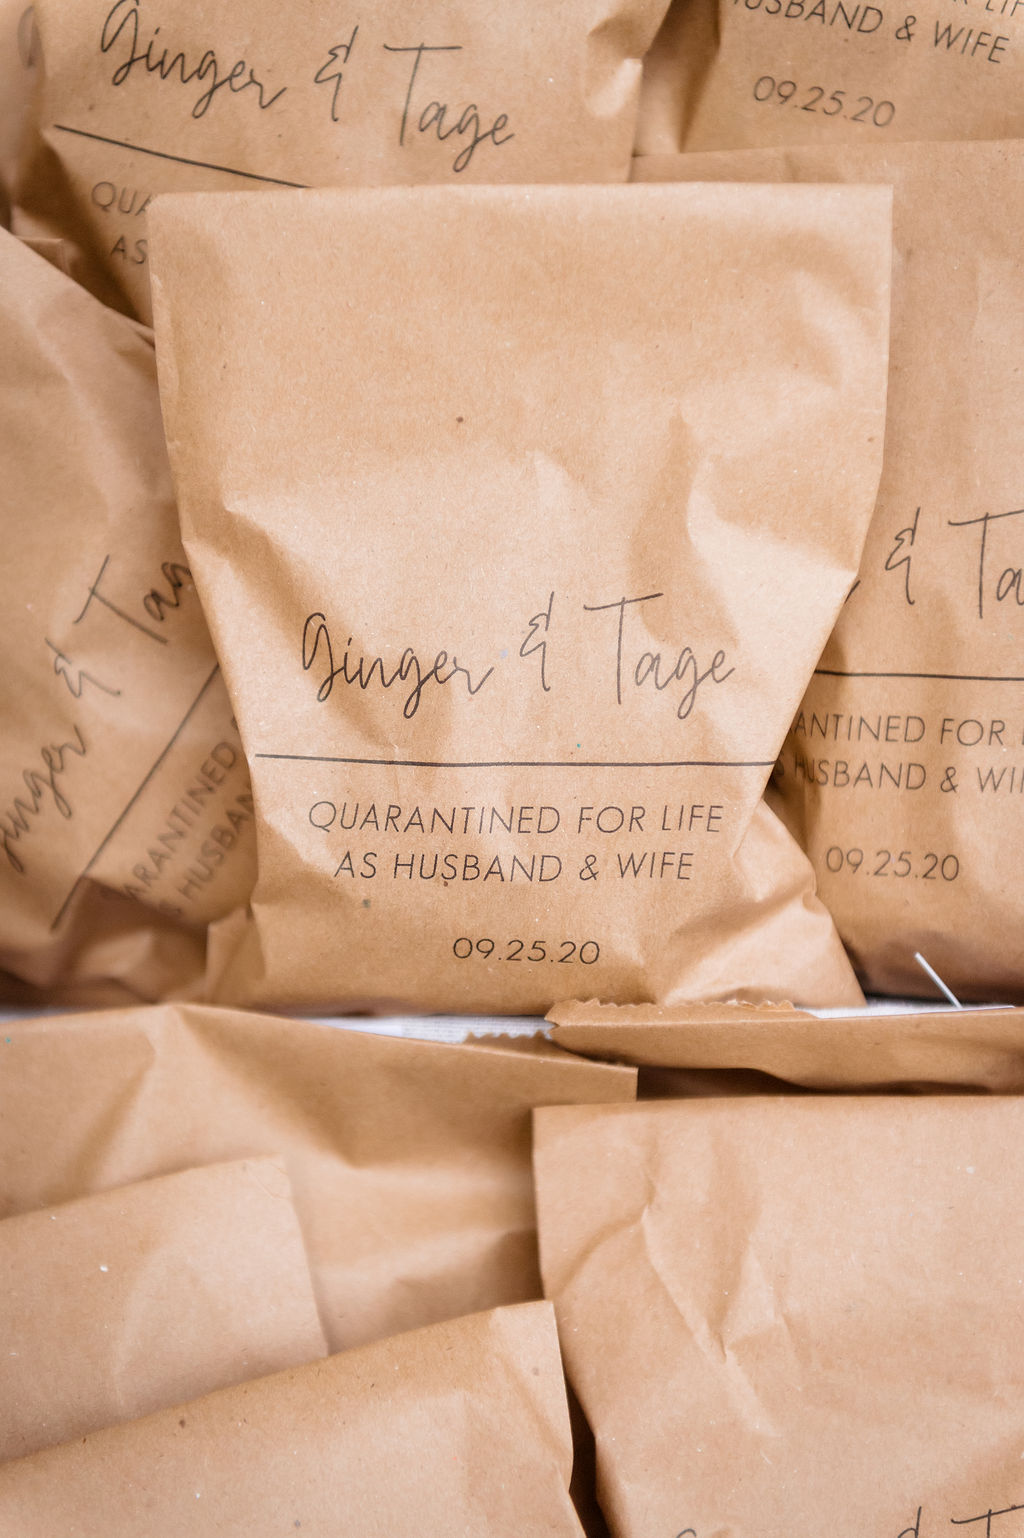 Ginger & Tage
QUA
AS
HUSBAND & WIFE
09.25.20
Ginger & Tage
QUARANTINED FOR LIFE
AS HUSBAND & WIFE
09.25.20
Ginger & Tag
ARANTINED
HUSBAN
& Ta
ANTINED FOR
HUSBAND & WI
09.25.20